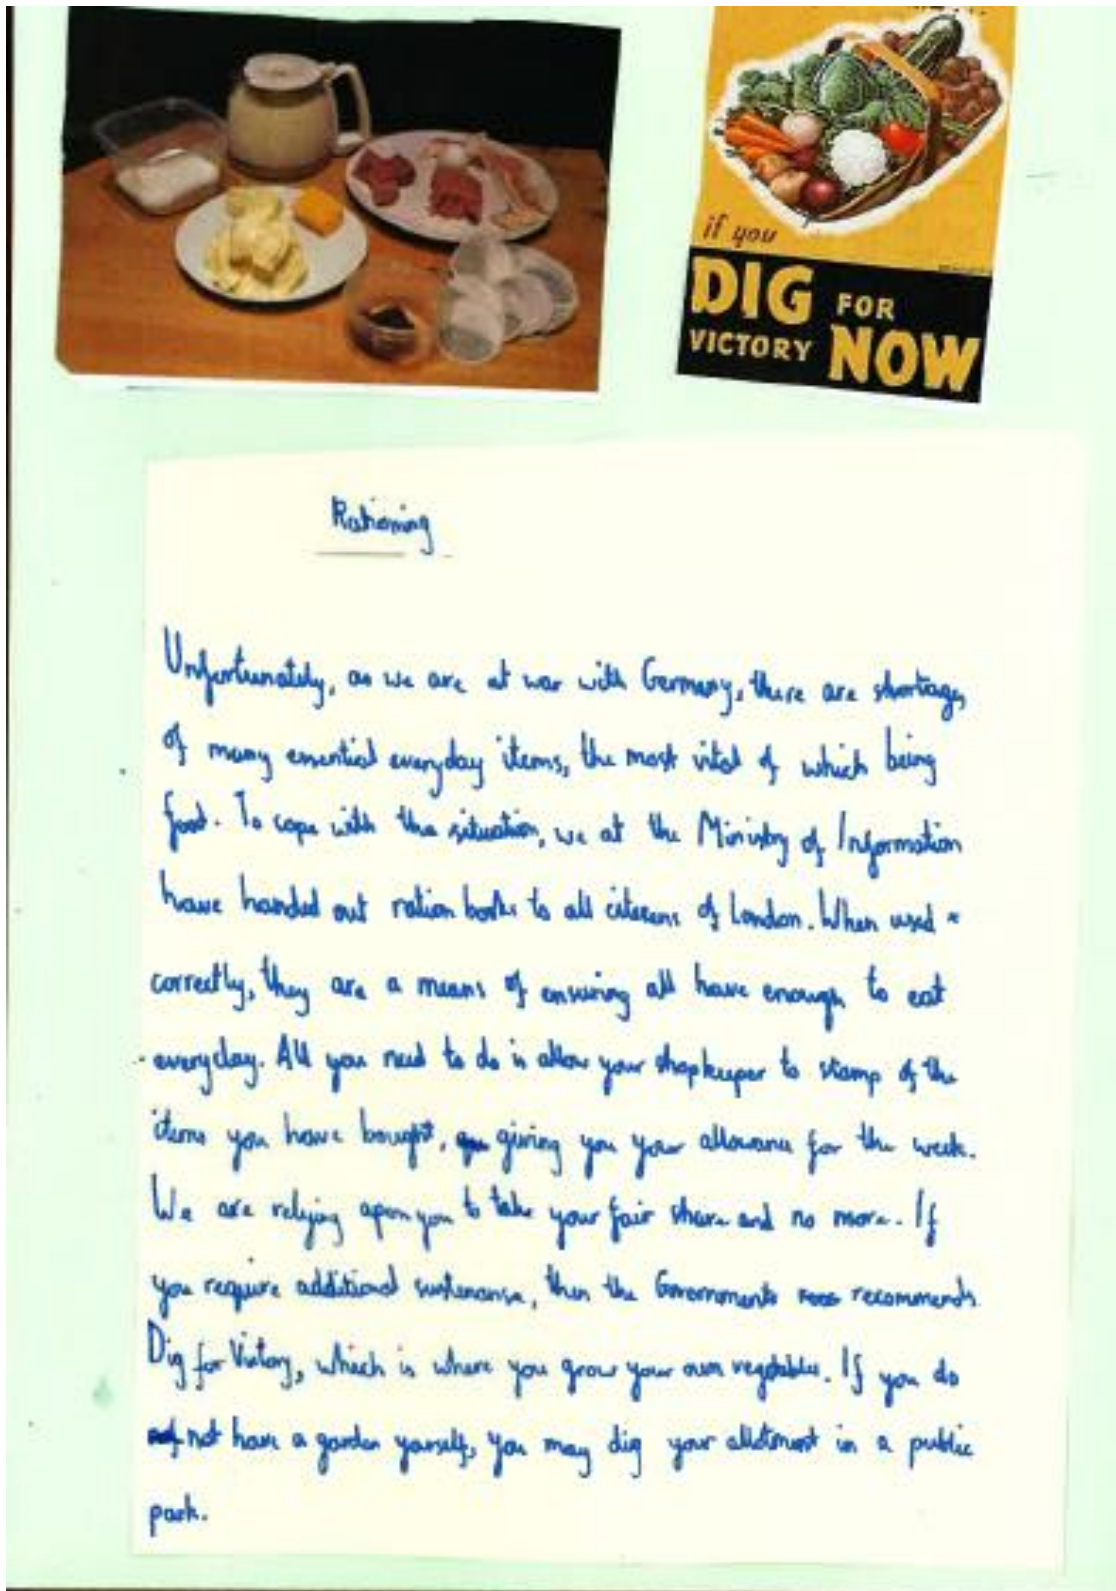 if you
DIG FOR
VICTORY NOW
Rationing
Unfortunately, as we are at war with Germany, there are shortages
of many essential everyday items, the most vital of which being
food. To cope with the situation, we at the Ministry of Information
have handed out ration books to all citizens of London. When used
correctly, they are a means of ensuring all have enough to eat
everyday. All you need to do is allow your shopkeeper to stamp of the
items you have bought, giving you your allowance for the week.
We are relying apon you to take your fair share and no more. If
you require additional sustenanse, then the Governments recommends
Dig for Victory, which is where you grow your own vegetables. If you do
not have a garden yourself, you may dig your allotment in a public
park.